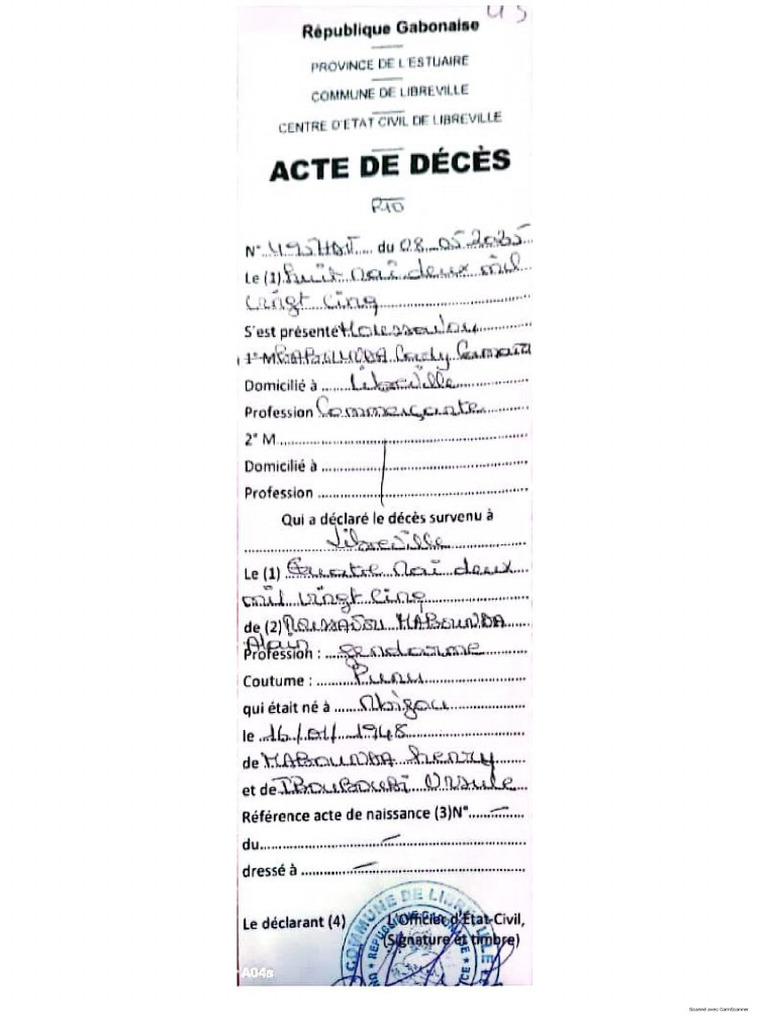 45
République Gabonaise
PROVINCE DE L'ESTUAIRE
COMMUNE DE LIBREVILLE
CENTRE D'ETAT CIVIL DE LIBREVILLE
ACTE DE DÉCÈS
N° du 08 05 2025
Le (1) huit Mai deux mil
vingt cinq
S'est présenté Moussavou
1° M MABOUNDA Cindy
Domicilié à Libreville
Profession Commerçante
2° M
Domicilié à
Profession
Qui a déclaré le décès survenu à
Libreville
Le (1) Quatre Mai deux
mil vingt cinq
de (2) MOUSSAVOU MABOUNDA
Alain
Profession : gendarme
Coutume : Punu
qui était né à Mbigou
le 16/01/1948
de MABOUNDA henry
et de IBOUBOUBI Ursule
Référence acte de naissance (3)N°
du
dressé à
Le déclarant (4) L'Officier d'Etat-Civil,
(Signature et timbre)
COMMUNE DE LIBREVILLE
A04s
Scanned avec CamScanner